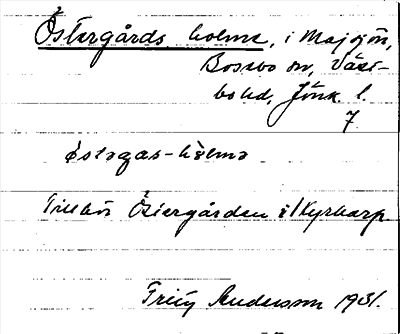 Östergårds holme, i Majsjön,
Bosebo sn, Väst-
bo hd, Jönk. l.
7
östəgas-hòlmə
Tillhör Östergården i Kyrkarp
Andersson 1931.